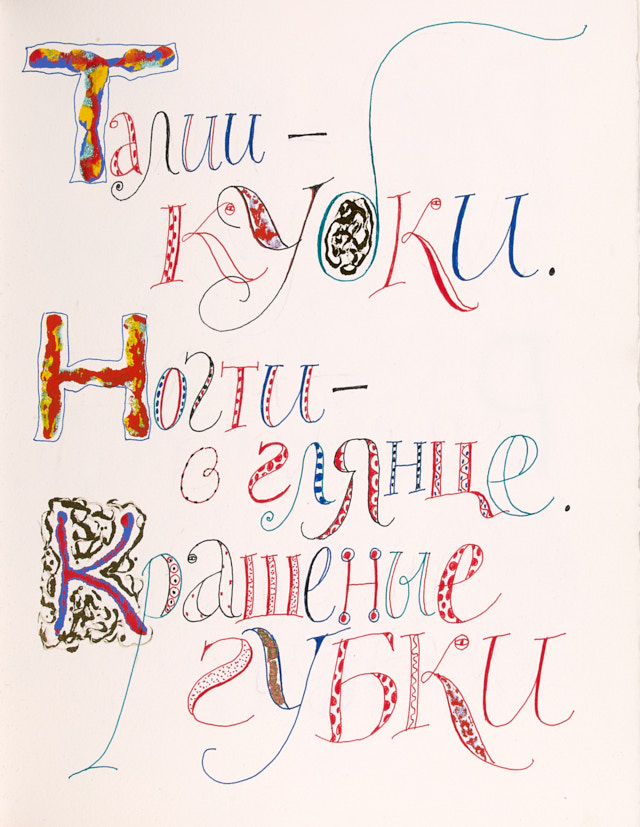 Талии –
кубки.
Ногти –
в глянце.
Крашеные
губки